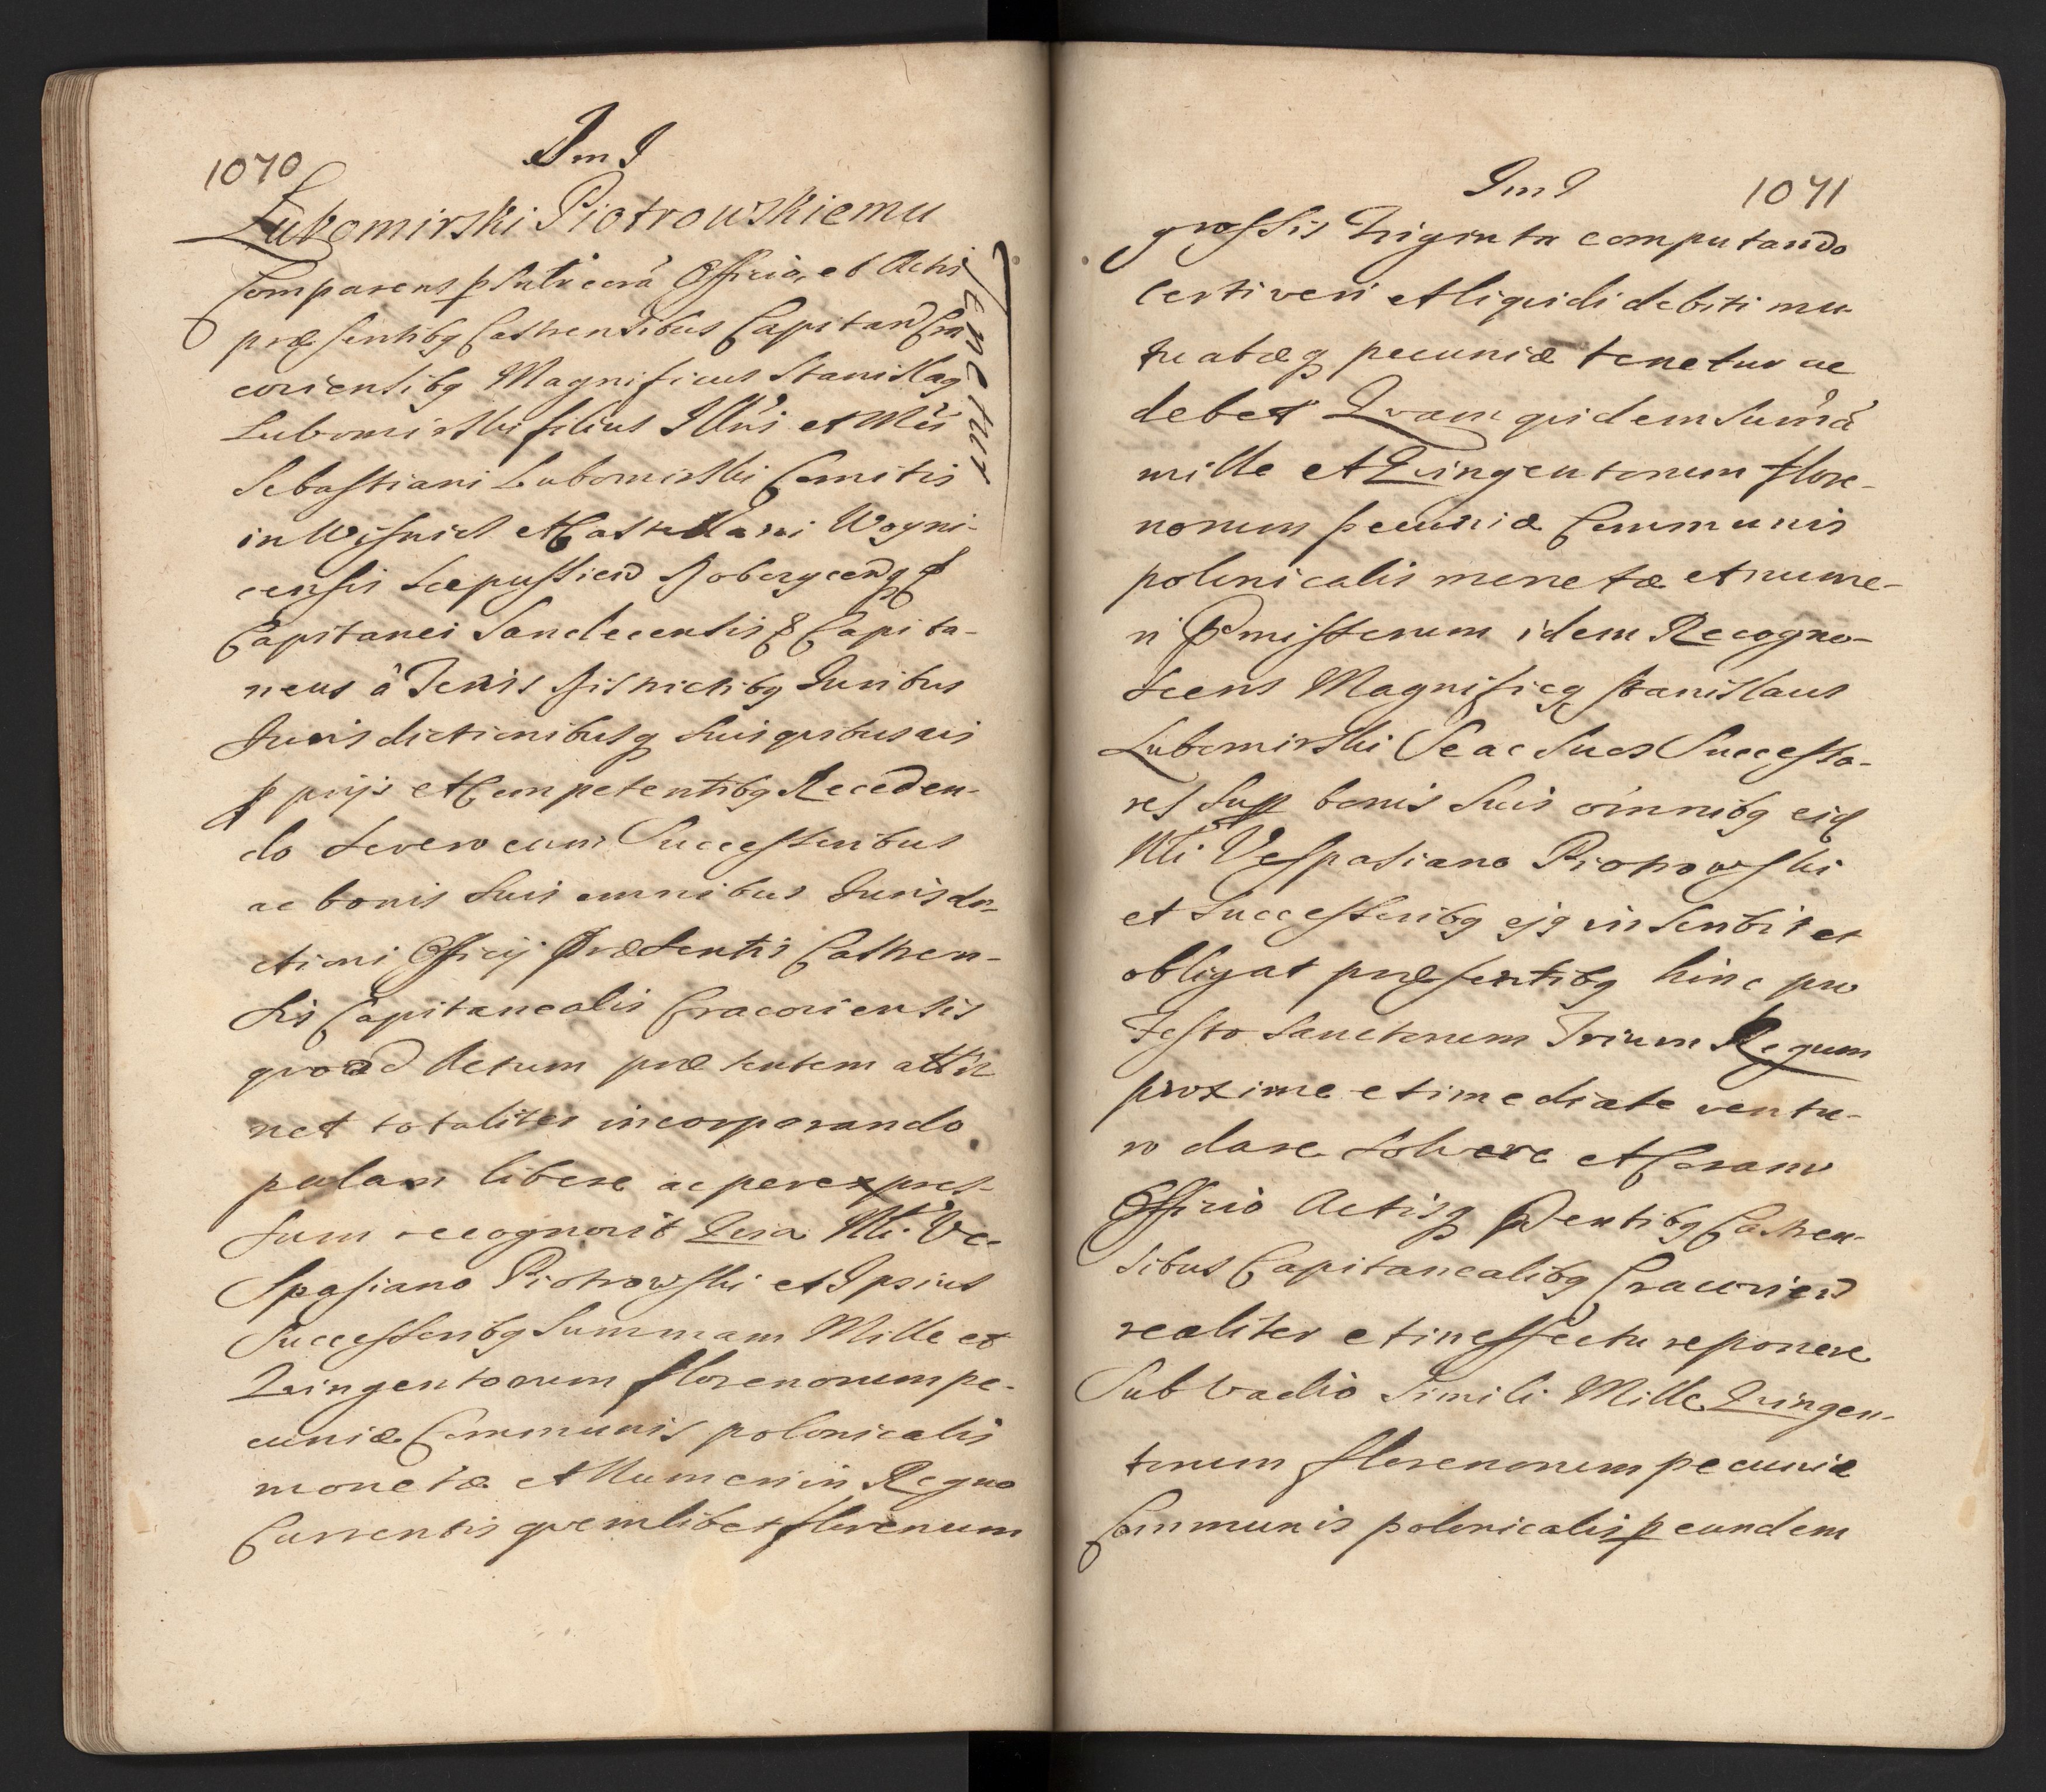 1070
Jm J
Lubomirski Piotrowskiemu
tenetur
Comparens coră Officio, et Actis
præsentibq Castrensibus Capitan Cra
coviensibq Magnificus Stanislaq
Lubomirski filius Illris et Mci
Sebastiani Lubomirski Comitis
in Wisnicz et Castellani Woyni-
censis Scepussien Dobczycen qq
Capitanei Sandecensis & Capita-
neus à Terris Districtibq Juribus
Jurisdictionibusq suis quibusvis
pprijs et Competentibq Receden-
do se vero cum Successoribus
ac bonis suis omnibus Jurisdi-
ctioni Officij Præsentis Castren-
sis Capitanealis Cracoviensis
quoad Actum præsentem atti-
net totaliter incorporando
palam libere ac per expres-
sum recognovit Quia Mci Ve-
spasiano Piotrowski et Ipsius
Successoribq Summam Mille et
Quingentorum florenorum pe-
cuniæ Communis polonicalis
monetæ et Numeri in Regno
Currentis quemlibet florenum
Jm J
1071
grossis triginta computando
certi veri et liquidi debiti mu-
tuatæq pecuniæ tenetur ac
debet Quam quidem Sumã
mille et Quingentorum flore-
norum pecuniæ Communis
polonicalis monetæ et nume-
ri Pmissorum idem Recogno-
scens Magnificq Stanislaus
Lubomirski Se ac Suos Successo-
res Supp bonis Suis omnibq eid
Mci Vespasiano Piotrowski
et Successoribq ejq inscribit et
obligat præsentibq hinc pro
Festo Sanctorum Trium Regum
proxime et imediate ventu-
ro dare solvere et Coram
Officio Actisq Pentibq Castren-
sibus Capitanealibq Cracovien
realiter et in effectu reponere
Sub vadio simili Mille Quingen-
torum florenorum pecuniæ
Communis polonicalis p eundem